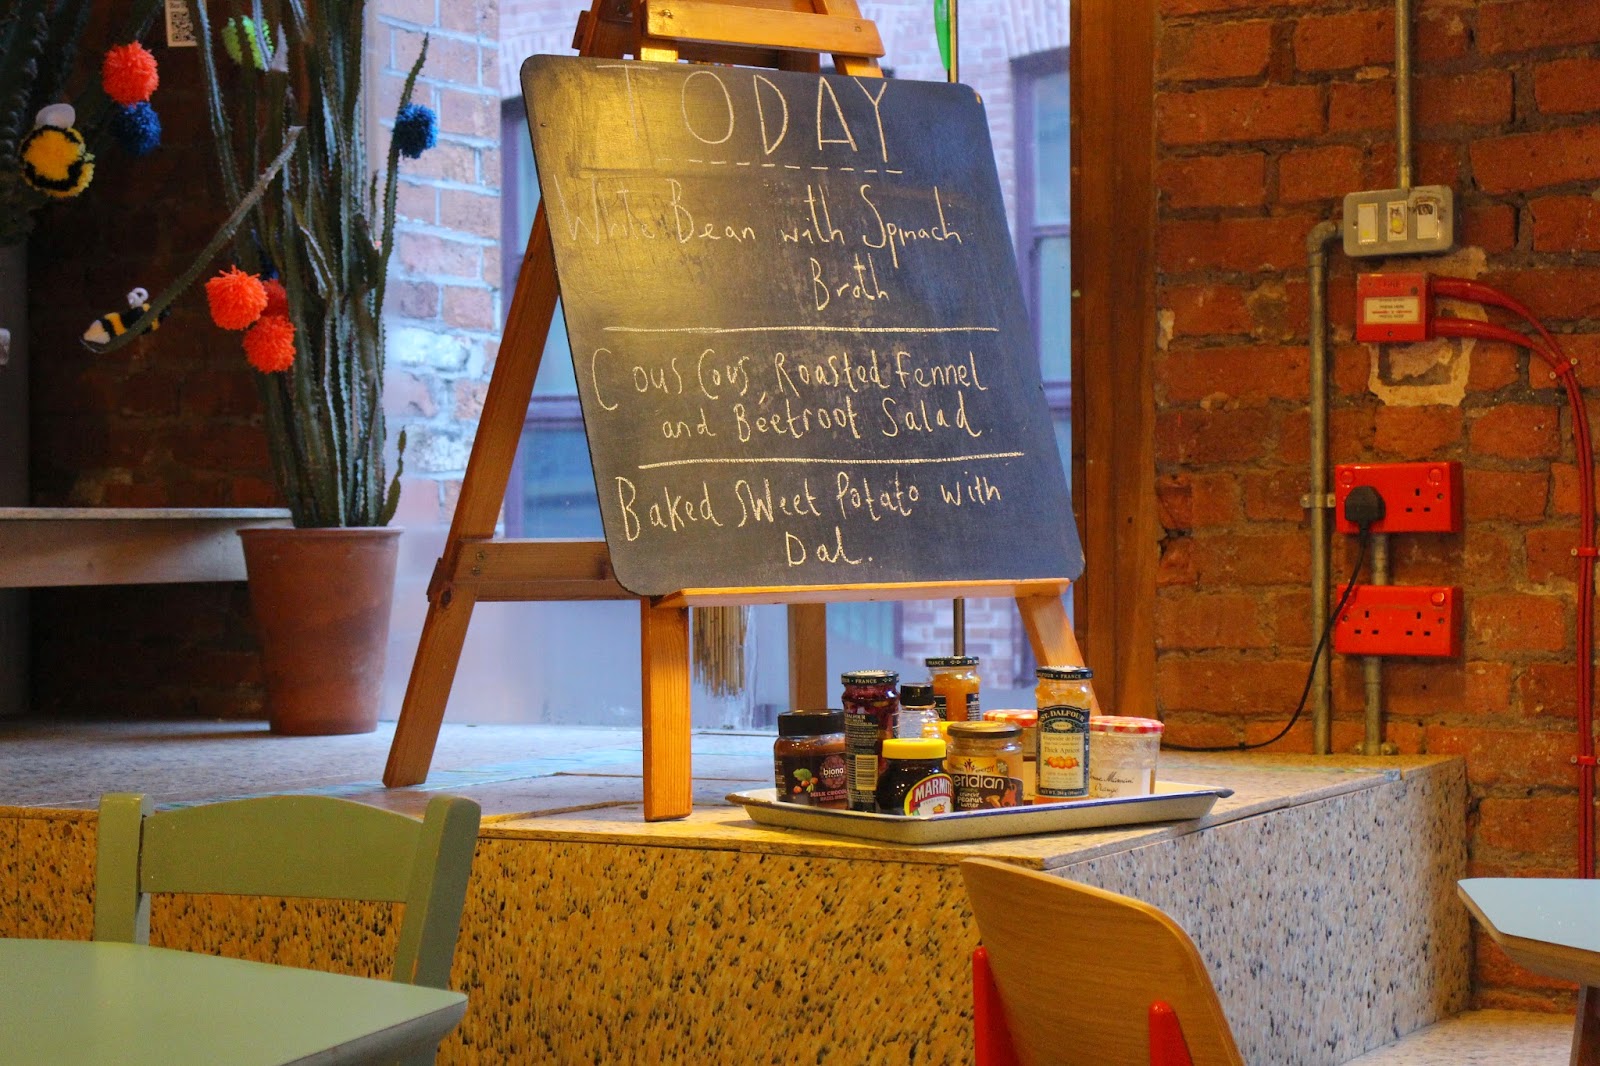 TODAY
White Bean with Spinach
Broth
Cous Cous, Roasted Fennel
and Beetroot Salad
Baked Sweet Potato with
Dal.
FRANCE
ST. DALFOUR
Thick Apricot
biona
MILK CHOCO
MARMITE
eridian
PEANUT